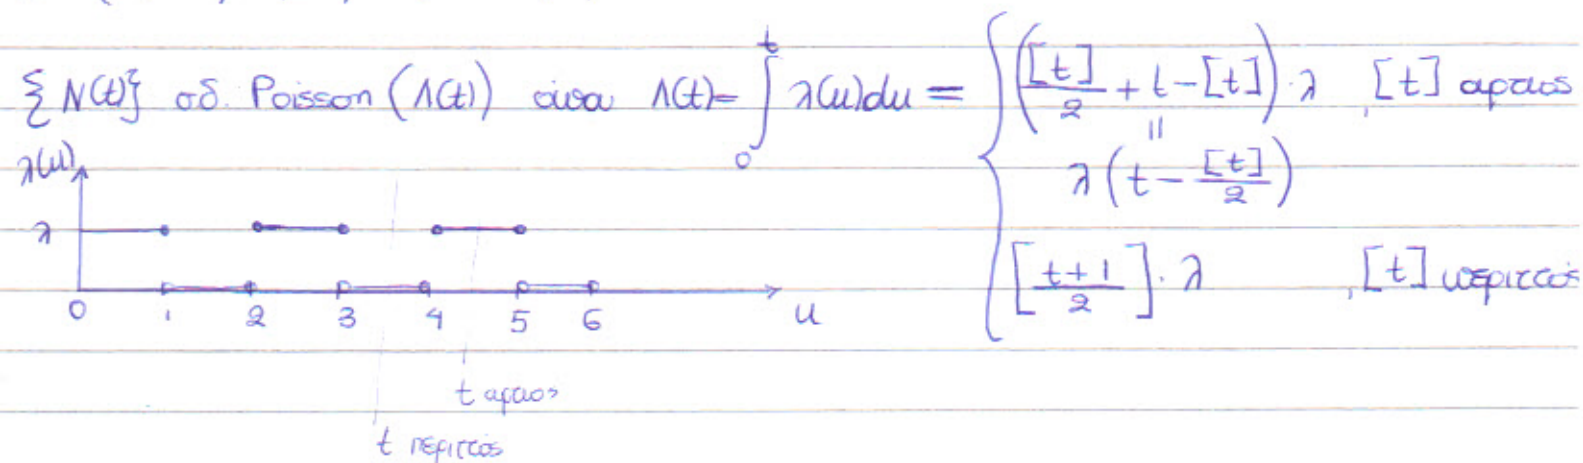 {N(t)} σδ. Poisson (Λ(t)) όπου Λ(t) = ∫₀ᵗ λ(u)du = { ([t]/2 + t − [t])·λ , [t] αρτιος
=
λ(t − [t]/2)
[(t+1)/2]·λ , [t] περιττός
λ(u)
λ
0 1 2 3 4 5 6 u
t αρτιος
t περιττός